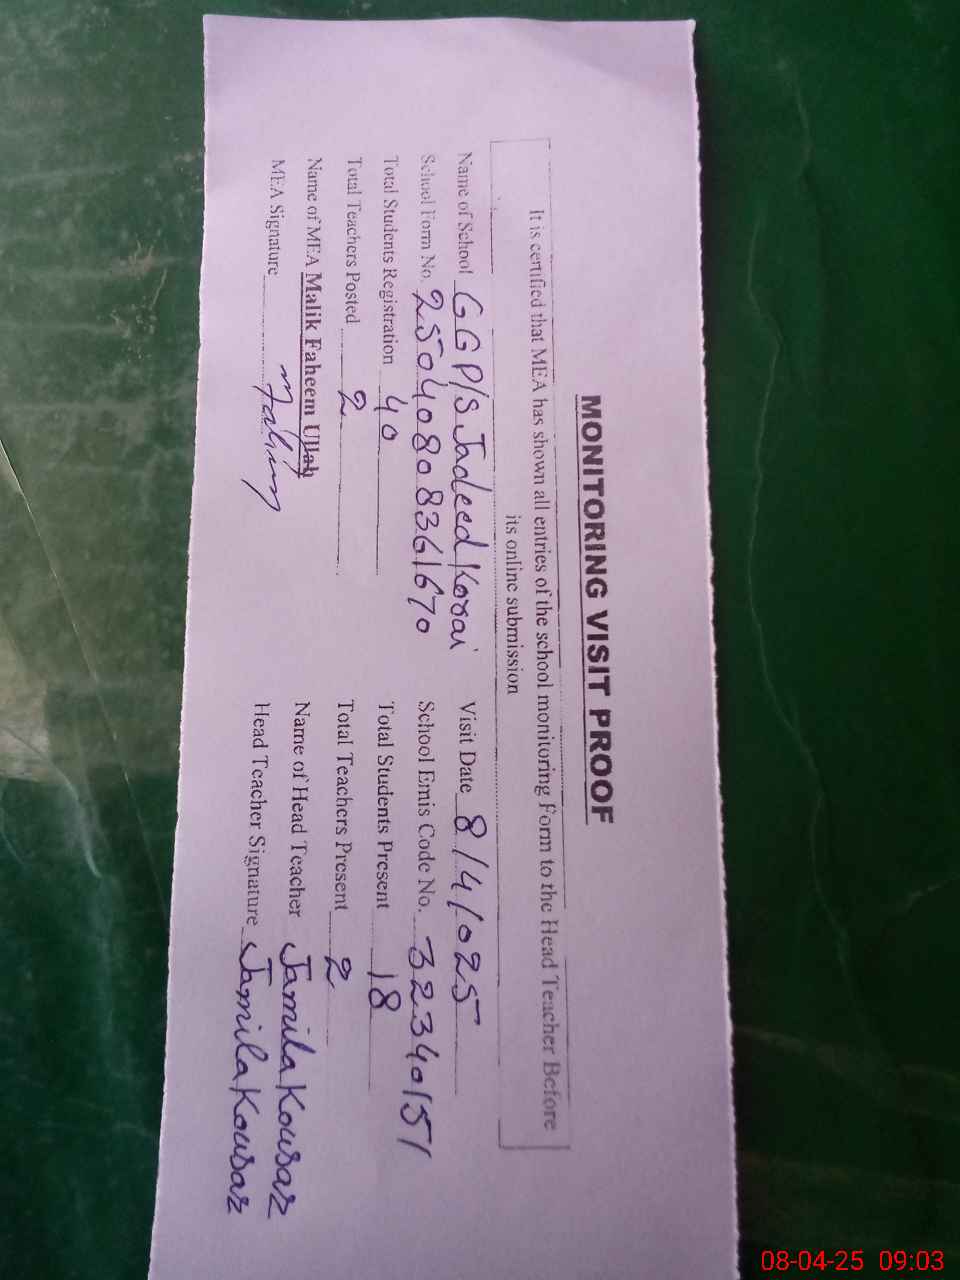 MONITORING VISIT PROOF
It is certified that MEA has shown all entries of the school monitoring Form to the Head Teacher Before
its online submission
Name of School GGP/S Jadeed Korai Visit Date 8/4/025
School Form No. 25040808361670 School Emis Code No. 32340151
Total Students Registration 40 Total Students Present 18
Total Teachers Posted 2 Total Teachers Present 2
Name of MEA Malik Faheem Ullah Name of Head Teacher Jamila Kousar
MEA Signature Head Teacher Signature Jamila Kousar
08-04-25 09:03